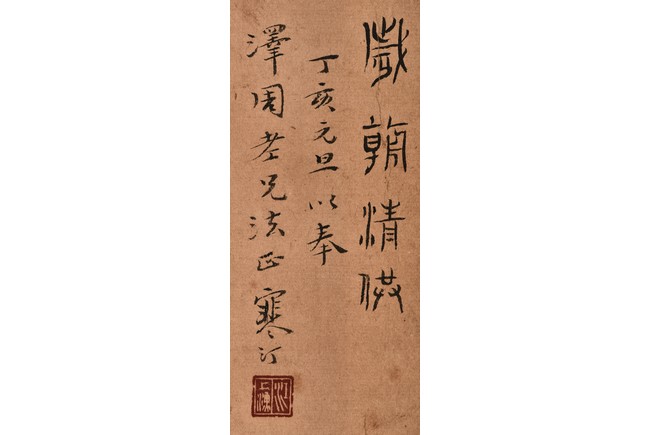 歲朝清供
丁亥元旦以奉
澤周老兄法正 寒汀